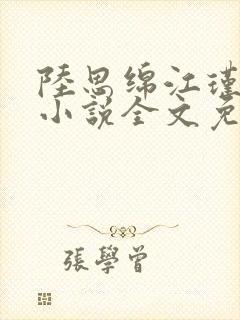 陸思綿江瑾
小說全文免
張學曾